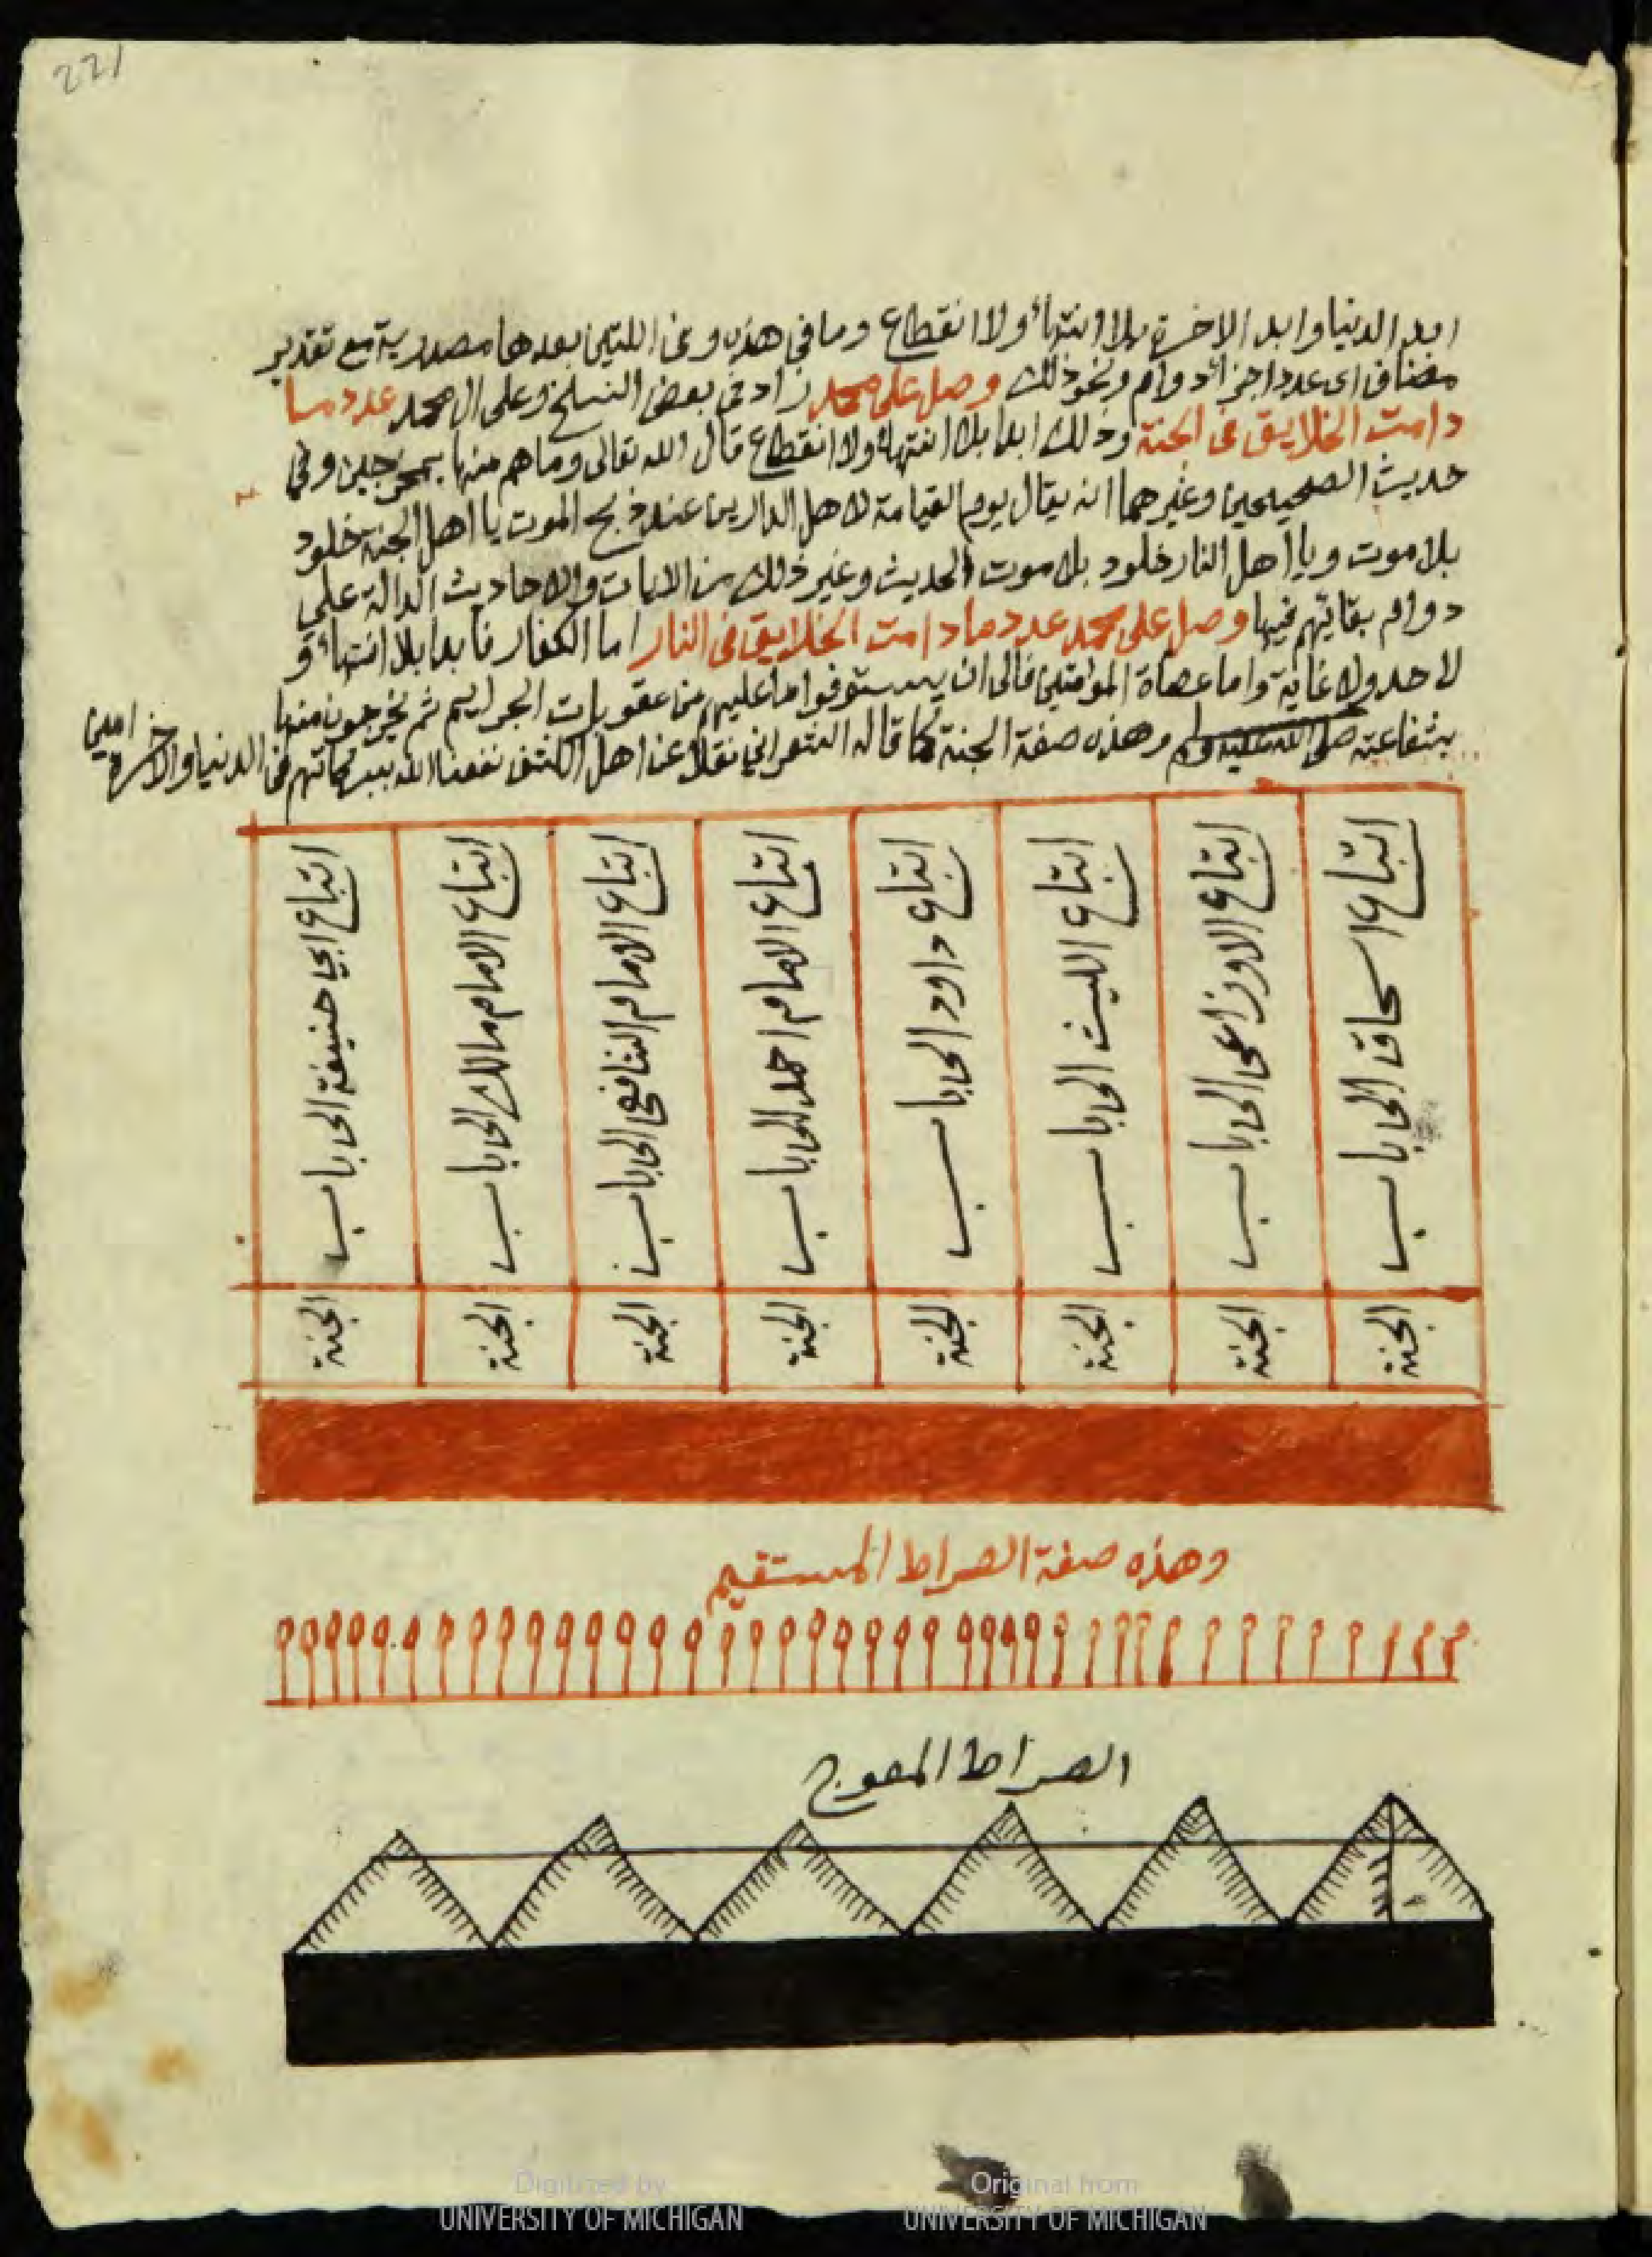 221
ابد الدنيا وابد الاخرة بلا انتهاء ولا انقطاع وما في هذه وفي اللتين بعدها مصدرية مع تقدير
مضاف اى عدد اجزاء دوام ونحو ذلك وصل على محمد زاد في بعض النسخ وعلى ال محمد عدد ما
دامت الخلايق فى الجنة وذلك ابدا بلا انتهاء ولا انقطاع قال الله تعالى وما هم منها بمخرجين وفي
حديث الصحيحين وغيرهما انه يقال يوم القيامة لاهل الدارين عند ذبح الموت يا اهل الجنة خلود
بلا موت ويا أهل النار خلود بلا موت الحديث وغير ذلك من الايات والاحاديث الدالة على
دوام بقايهم فيها وصل على محمد عدد ما دامت الخلايق فى النار اما الكفار فابدا بلا انتهاء و
لا حد ولا غاية واما عصاة المؤمنين فالى ان يستوفوا ما عليهم من عقوبات الجرايم ثم يخرجون منها
بشفاعته صلى الله عليه وسلم وهذه صفة الجنة كما قاله الشعراني نقلا عن اهل الكشف نفعنا الله ببركاتهم فى الدنيا والاخرة امين
اتباع اسحاق الى باب
الجنة
اتباع الاوزاعى الى باب
الجنة
اتباع الليث الى باب
الجنة
اتباع داود الى باب
الجنة
اتباع الامام احمد الى باب
الجنة
اتباع الامام الشافعى الى باب
الجنة
اتباع الامام مالك الى باب
الجنة
اتباع ابي حنيفة الى باب
الجنة
وهذه صفة الصراط المستقيم
الصراط المعوج
Digitized by
UNIVERSITY OF MICHIGAN
Original from
UNIVERSITY OF MICHIGAN